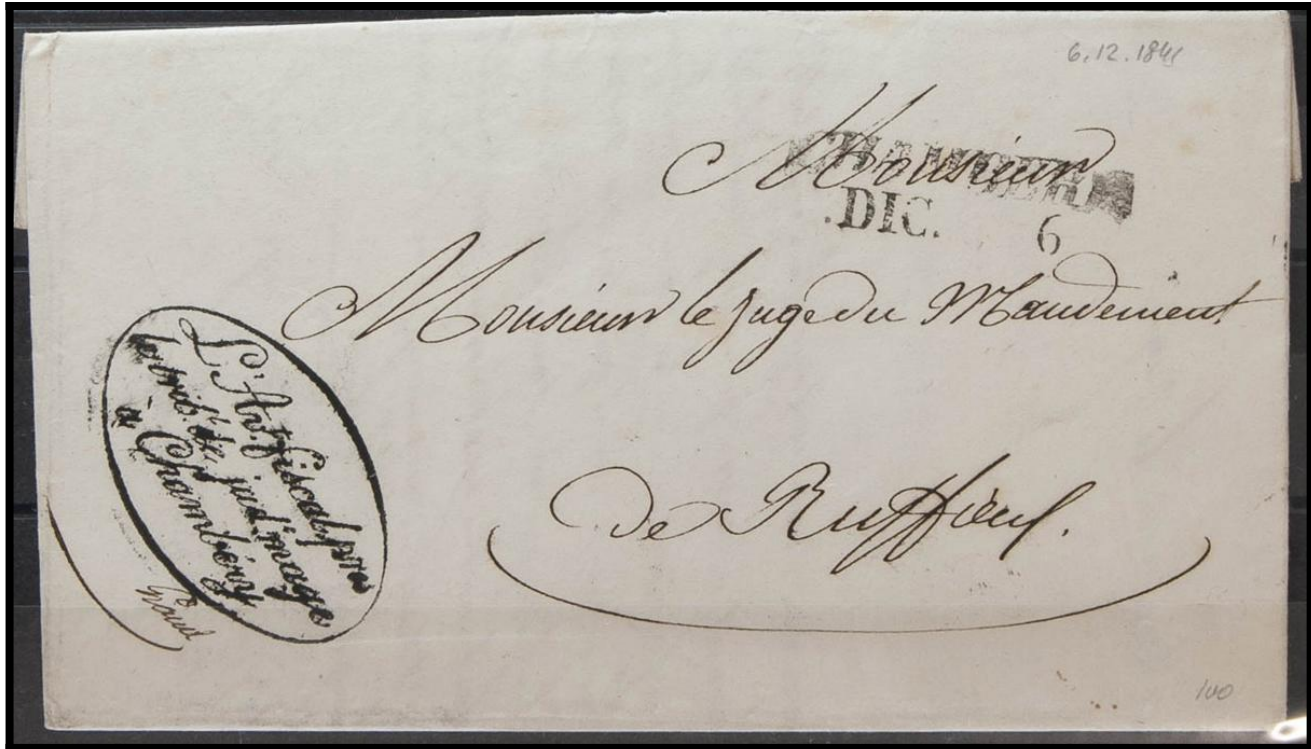 6.12.184
Monsieur
CHAMBERY
.DIC. 6
Monsieur le juge du Mandement
de Ruffieux.
L'Avt. fiscal, près
le trib.l de jud.mage
à Chambéry
100